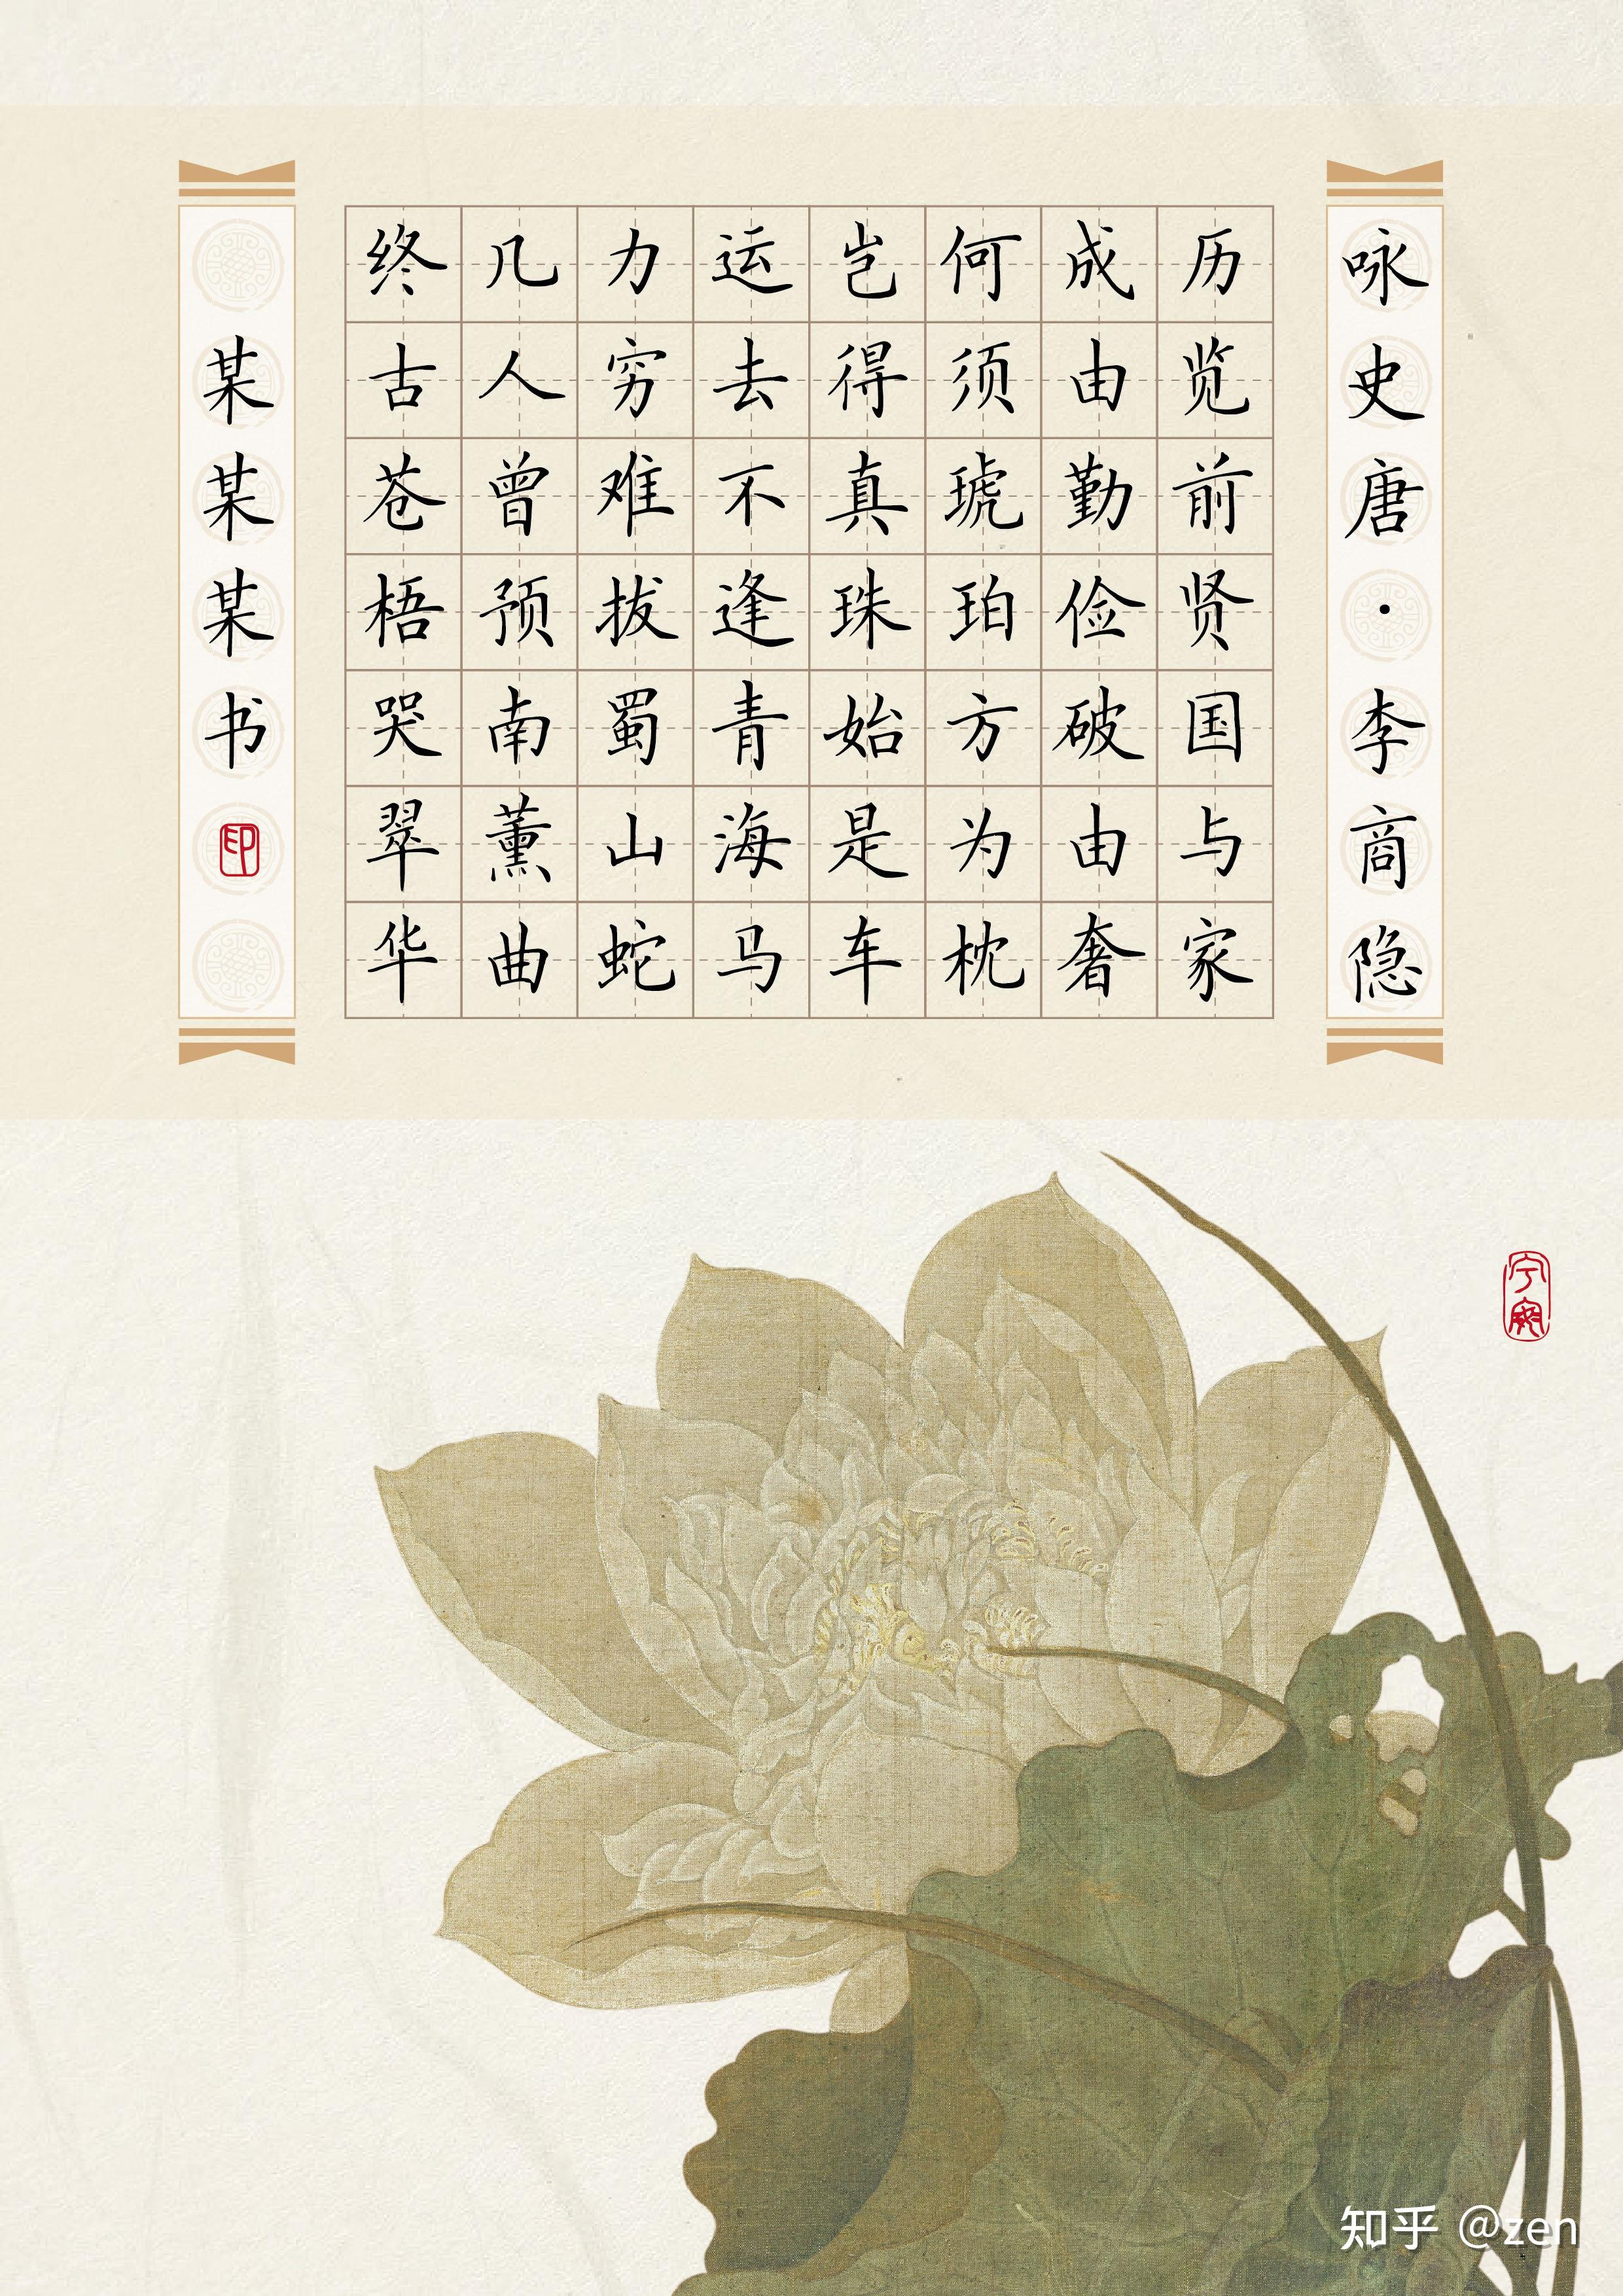 咏史唐·李商隐
历览前贤国与家
成由勤俭破由奢
何须琥珀方为枕
岂得真珠始是车
运去不逢青海马
力穷难拔蜀山蛇
几人曾预南薰曲
终古苍梧哭翠华
某某某书
印
知乎 @zen